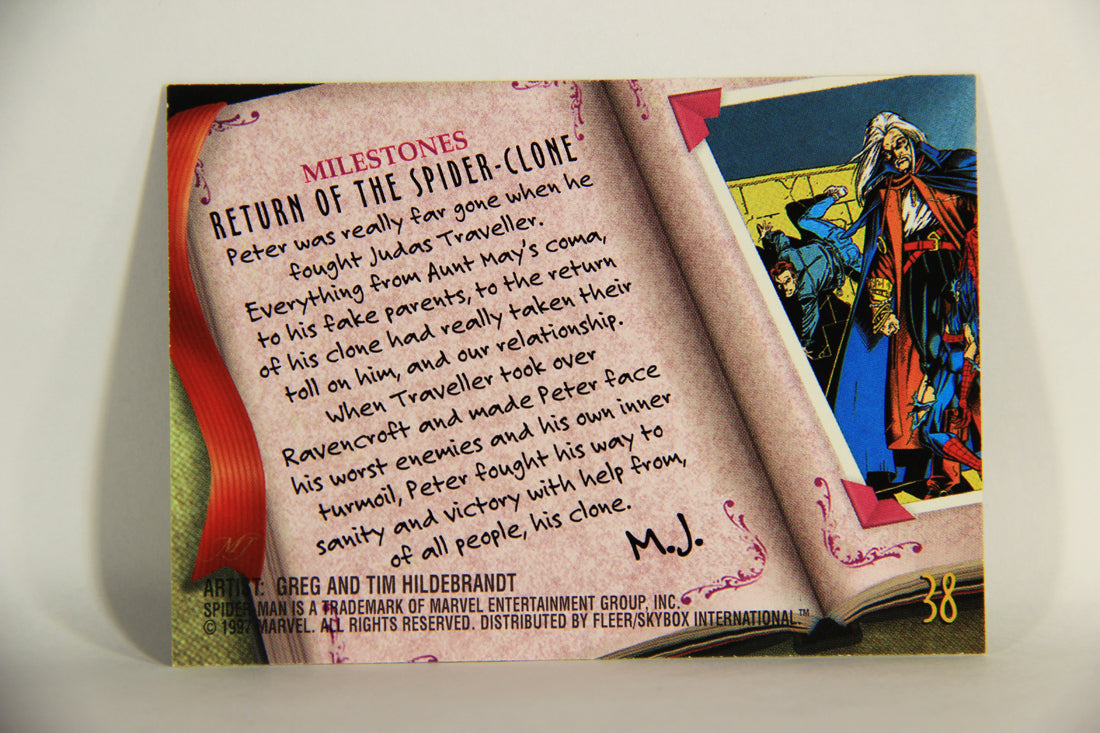 MILESTONES
RETURN OF THE SPIDER-CLONE
Peter was really far gone when he
fought Judas Traveller.
Everything from Aunt May's coma,
to his fake parents, to the return
of his clone had really taken their
toll on him, and our relationship.
When Traveller took over
Ravencroft and made Peter face
his worst enemies and his own inner
turmoil, Peter fought his way to
sanity and victory with help from,
of all people, his clone.
M.J.
MJ
ARTIST: GREG AND TIM HILDEBRANDT
SPIDER-MAN IS A TRADEMARK OF MARVEL ENTERTAINMENT GROUP, INC.
© 1997 MARVEL. ALL RIGHTS RESERVED. DISTRIBUTED BY FLEER/SKYBOX INTERNATIONAL.™
38